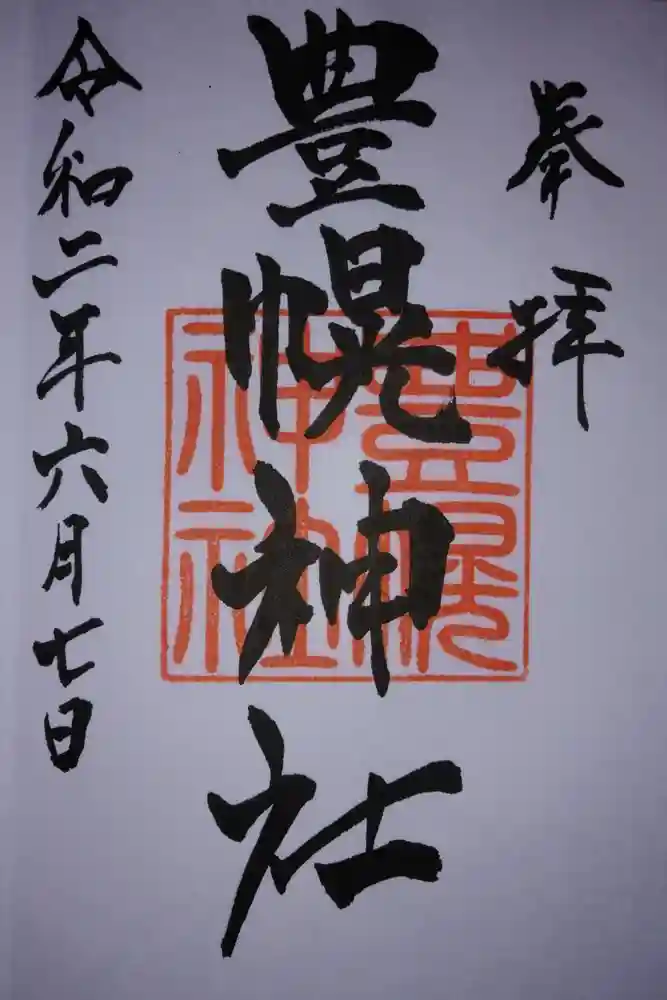 奉拝
豊幌神社
豊幌神社
令和二年六月七日